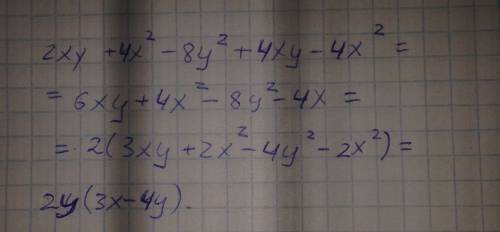 2xy + 4x² - 8y² + 4xy - 4x² =
= 6xy + 4x² - 8y² - 4x =
= 2(3xy + 2x² - 4y² - 2x²) =
2y(3x - 4y).